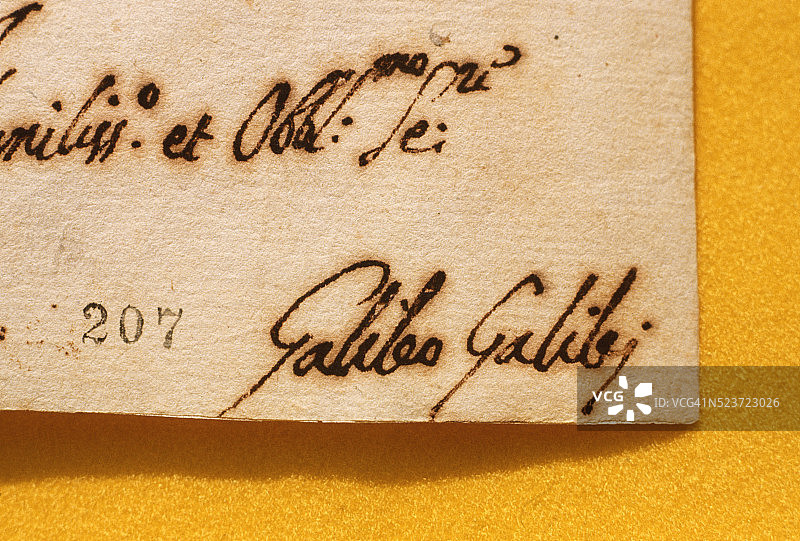 miliss.º et Obbl:mo Se:re
207
Galileo Galilej
VCG
VCG41N523723026